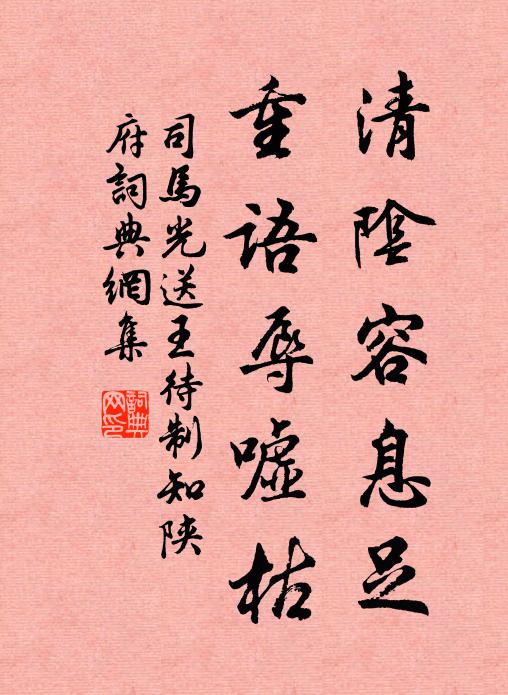 清陰容息足
重語辱嘘枯
司馬光送王待制知陝
府詞典網集
詞典
网印